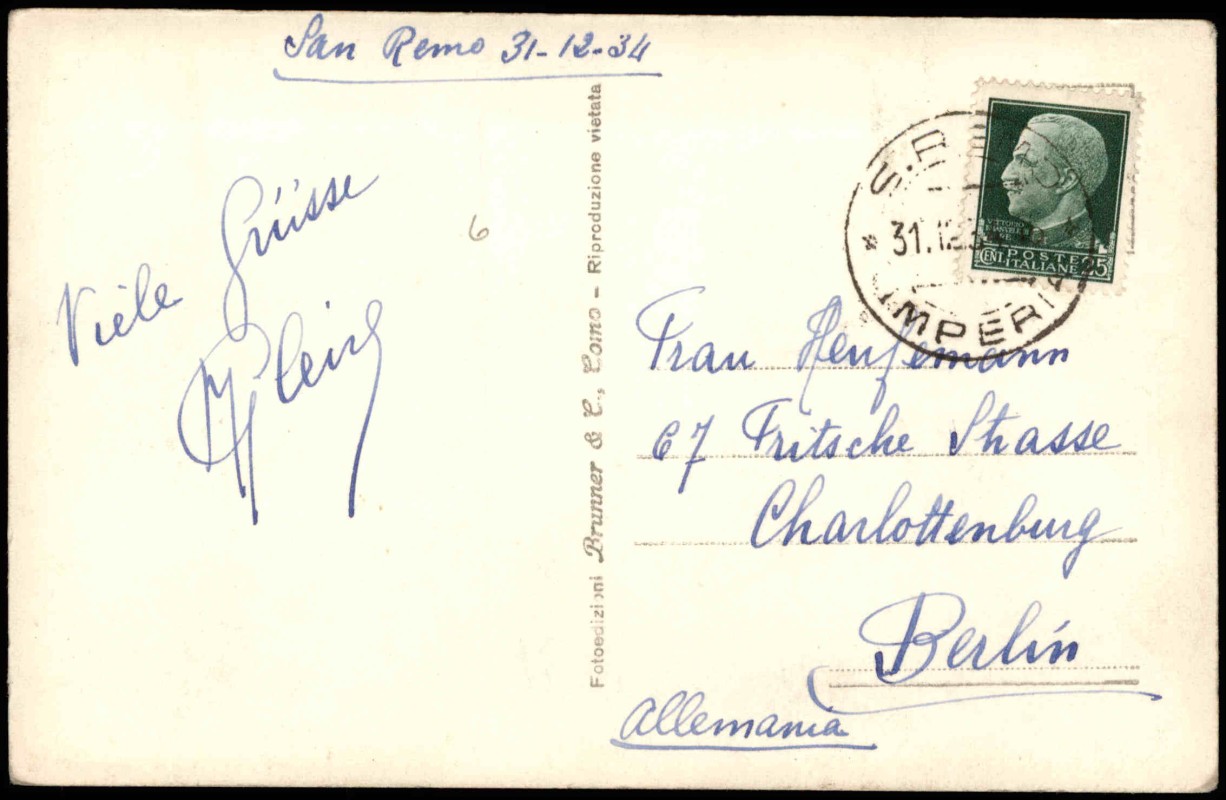 San Remo 31-12-34
Viele Grüsse
6
Fotoedizioni Brunner & C., Como - Riproduzione vietata
S.R
31.12.34
IMPERIA
VITTORIO
EMANUELE
RE
POSTE
CENT. ITALIANE 25
Frau
67 Fritsche Strasse
Charlottenburg
Berlin
Allemania